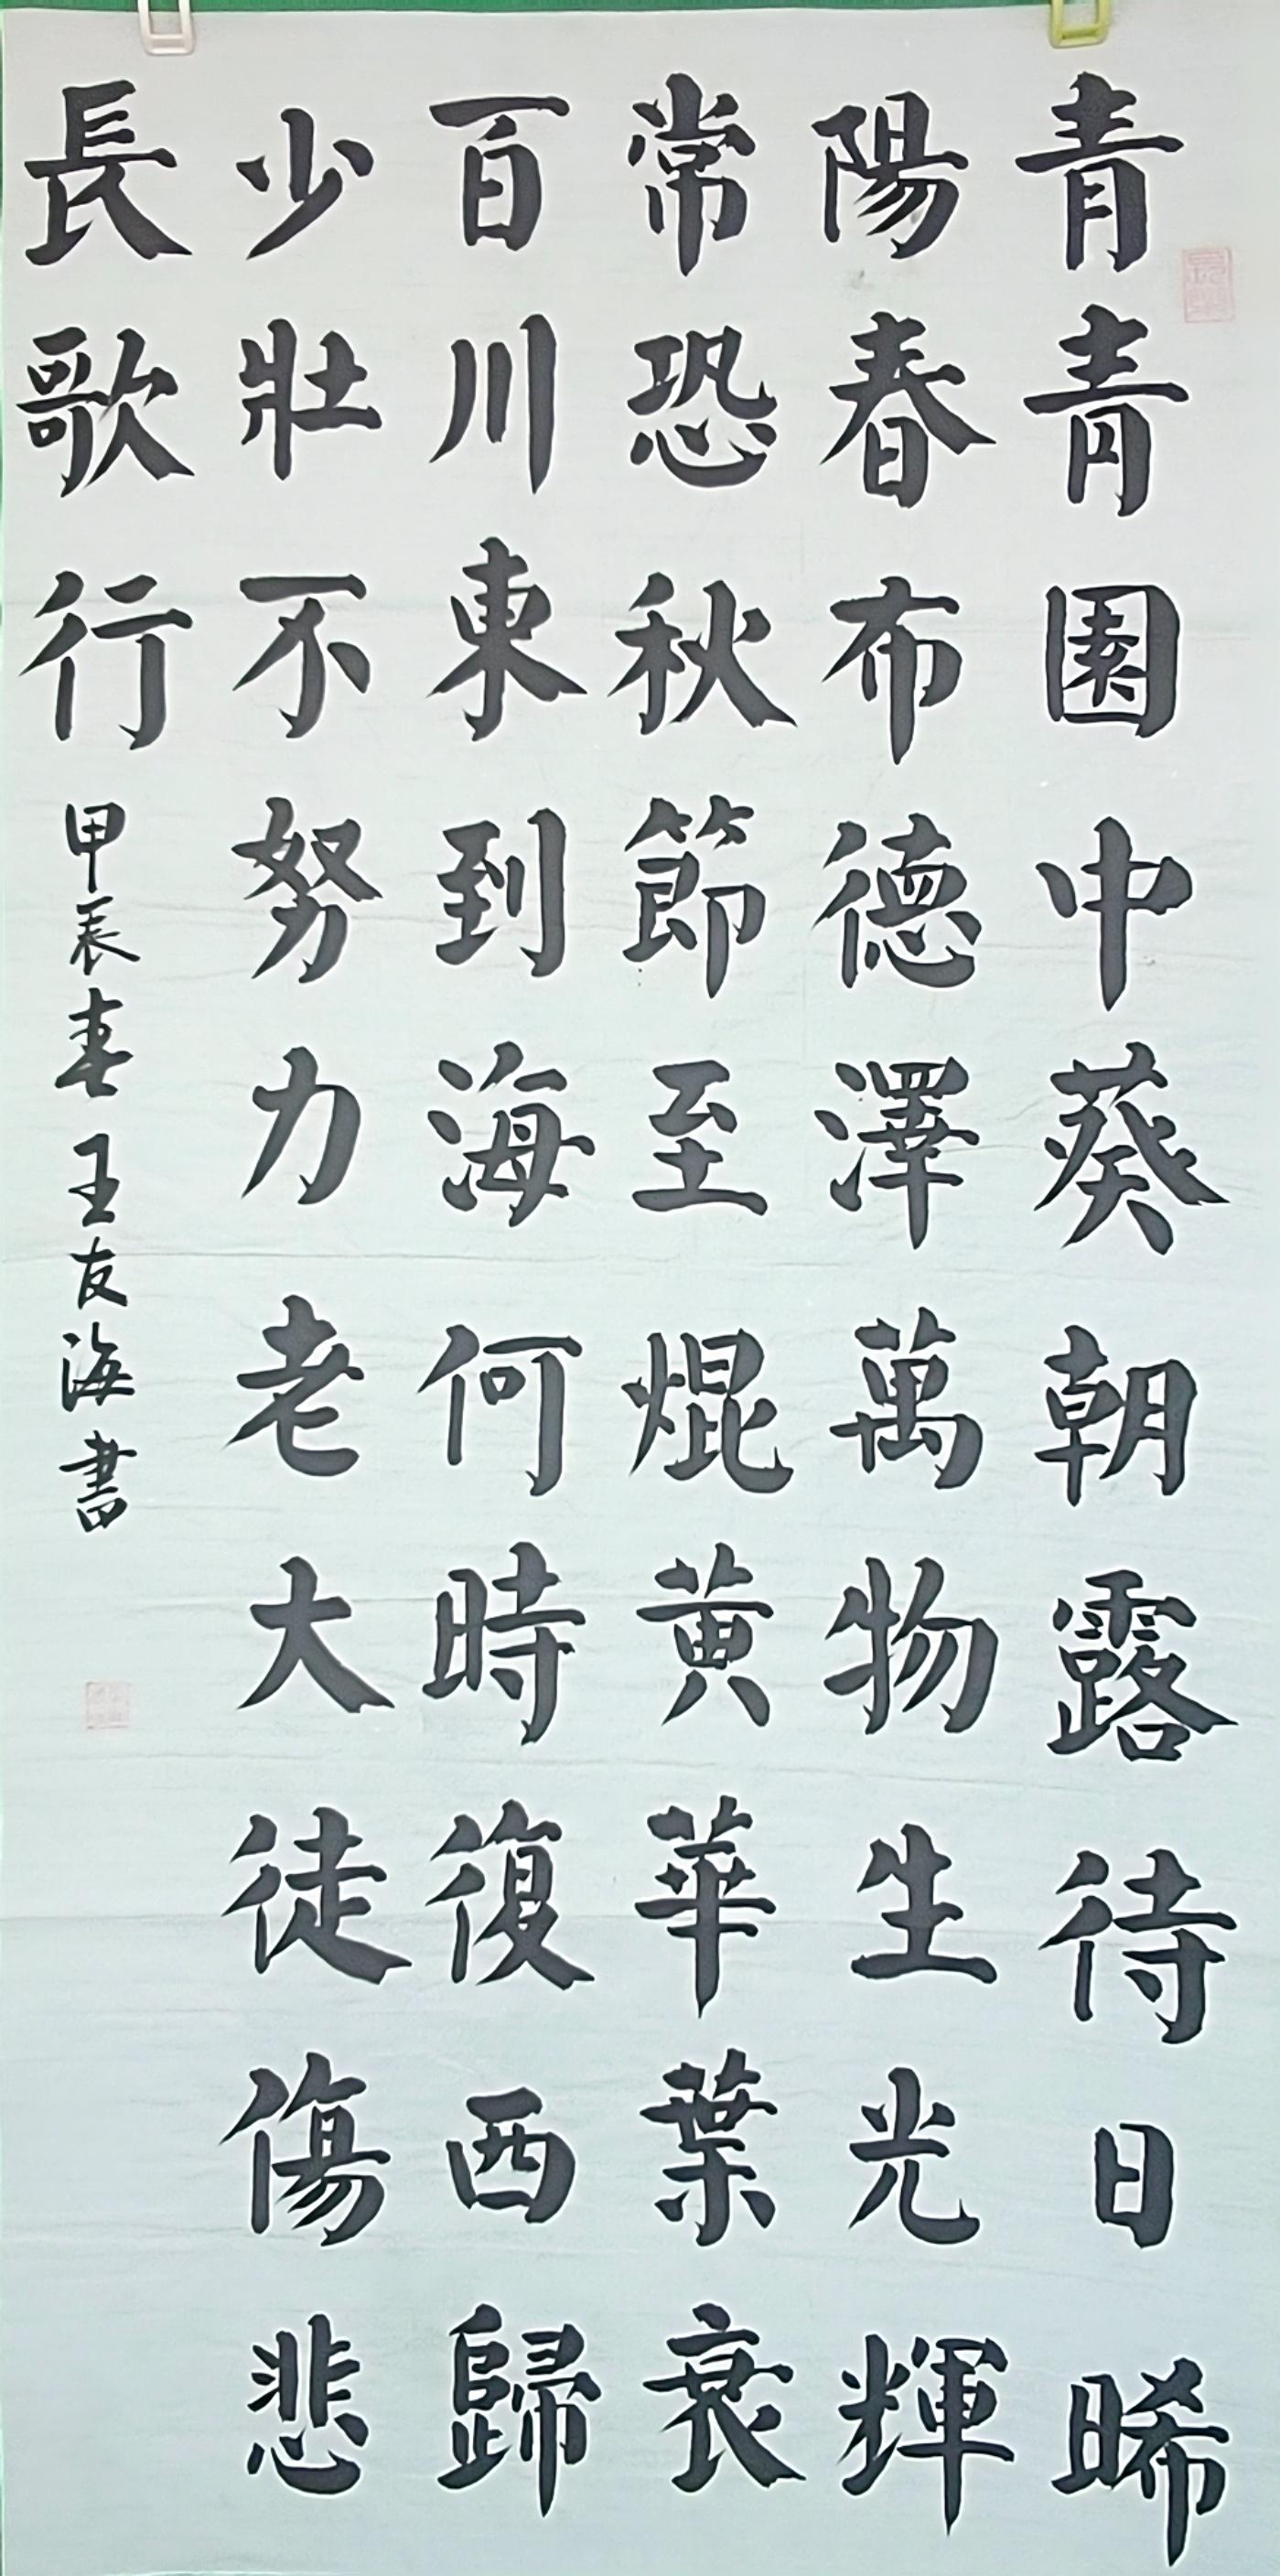 青青園中葵朝露待日晞
陽春布德澤萬物生光輝
常恐秋節至焜黄華葉衰
百川東到海何時復西歸
少壯不努力老大徒傷悲
長歌行 甲辰春 王友海書